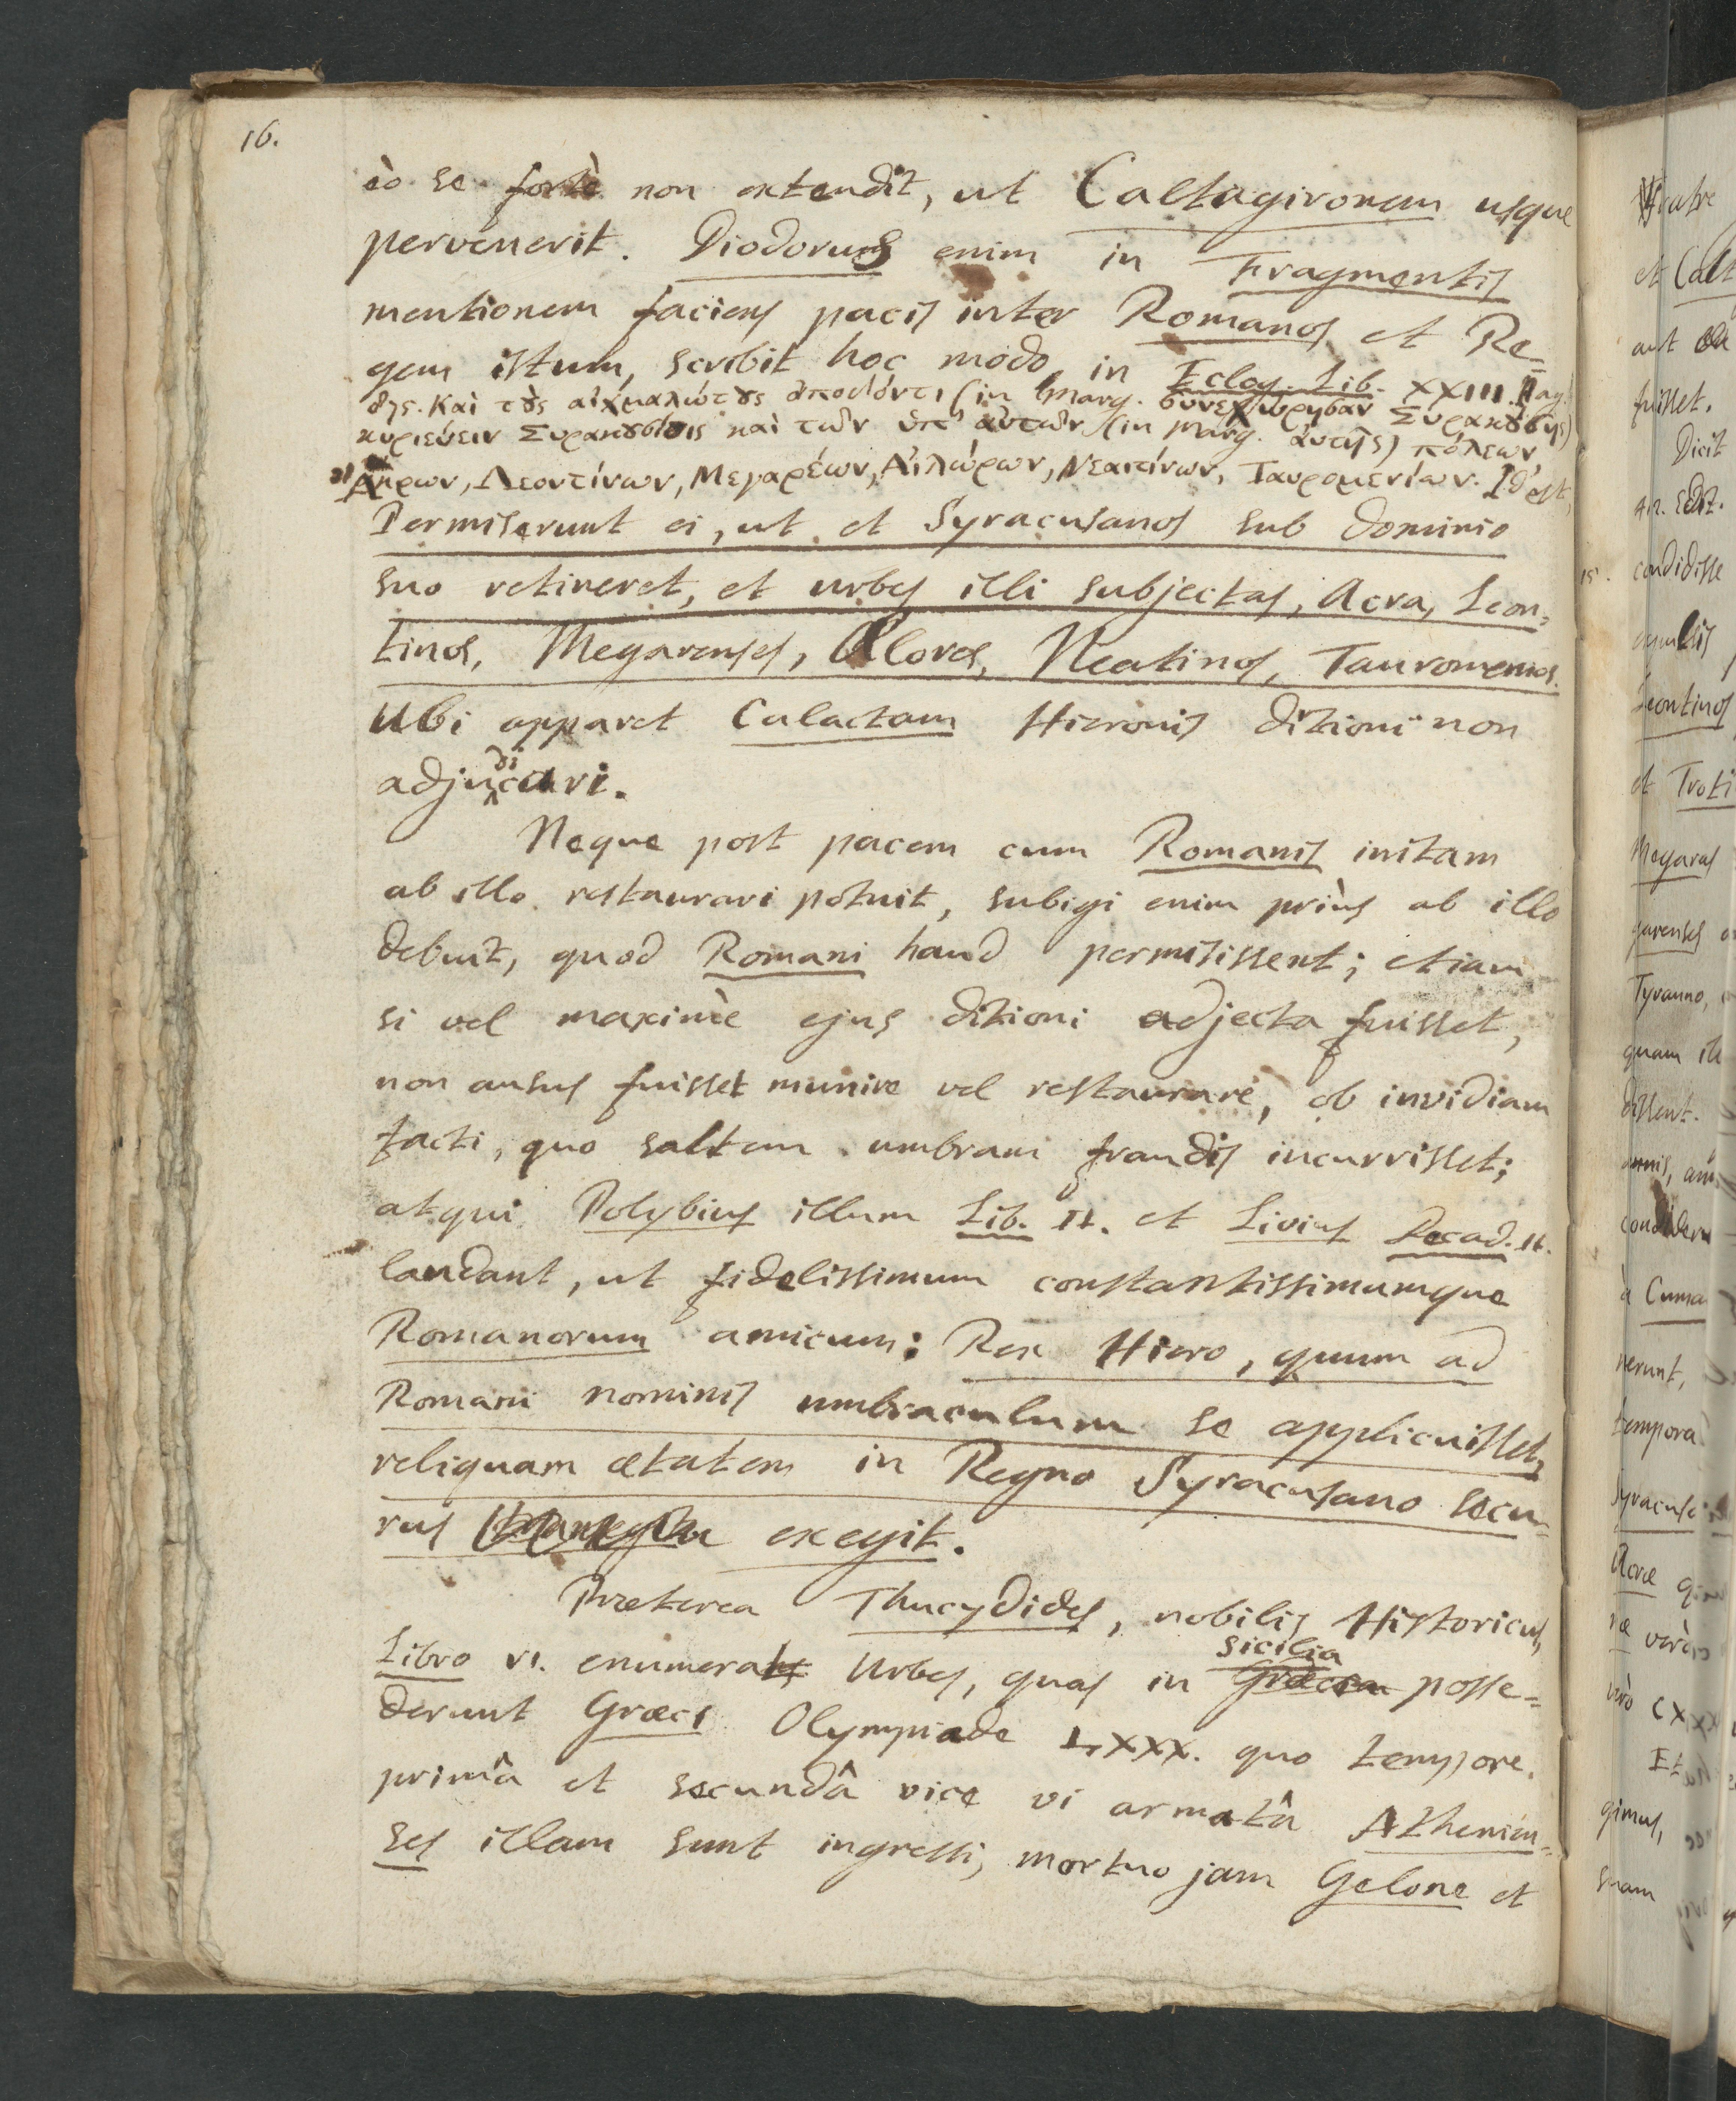 16.
eò se fortè non extendit, ut Caltagironem usque
pervenerit. Diodorus enim in Fragmentis
mentionem faciens pacis inter Romanos et Re=
gem istum, scribit hoc modo in Eclog. Lib. XXIII. Pag.
Καὶ τὸς αἰχμαλώτȣς ἀποδόντι (in marg. συνεχώρησαν Συρακȣσης)
κυριεύειν Συρακȣσίοις καὶ τῶν ὑπ' αὐτῶν (in marg. ἀυτῆς) πόλεων
Ἄκρων, Λεοντίνων, Μεγαρέων, Αἰλώρων, Νεαιτίνων, Ταυρομενίων. Id est,
Permiserunt ei, ut et Syracusanos sub dominio
suo retineret, et urbes illi subjectas, Acra, Leon=
tinos, Megarenses, Ælores, Neatinos, Tauromenios.
Ubi apparet Calactam Hieronis ditioni non
adjudicari.
Neque post pacem cum Romanis initam
ab illo restaurari potuit, subigi enim priùs ab illo
debuit, quod Romani haud permisissent; etiam
si vel maximè ejus ditioni adjecta fuisset,
non ausus fuisset munire vel restaurare, ob invidiam
facti, quo saltem umbram fraudis incurrisset;
atqui Polybius illum Lib. II. et Livius Decad. II.
laudant, ut fidelissimum constantissimumque
Romanorum amicum: Rex Hiero, quum ad
Romani nominis umbraculum se applicuisset,
reliquam ætatem in Regno Syracusano secu=
rus exegit.
Præterea Thucydides, nobilis Historicus,
Libro VI. enumerat Urbes, quas in Græcia Sicilia posse=
derunt Græci Olympiade LXXX. quo tempore
primâ et secundâ vice vi armatâ Athenien=
ses illam sunt ingressi, mortuo jam Gelone et
15.
et Calt
fuisset.
Dicit
condidisse
Leontinos
et Troti
Megaras
garenses
Tyranno,
quam
à Cuma
nerunt,
tempora
Syracusi
Acræ
verò
verò CXX
Et
gimus,
suam